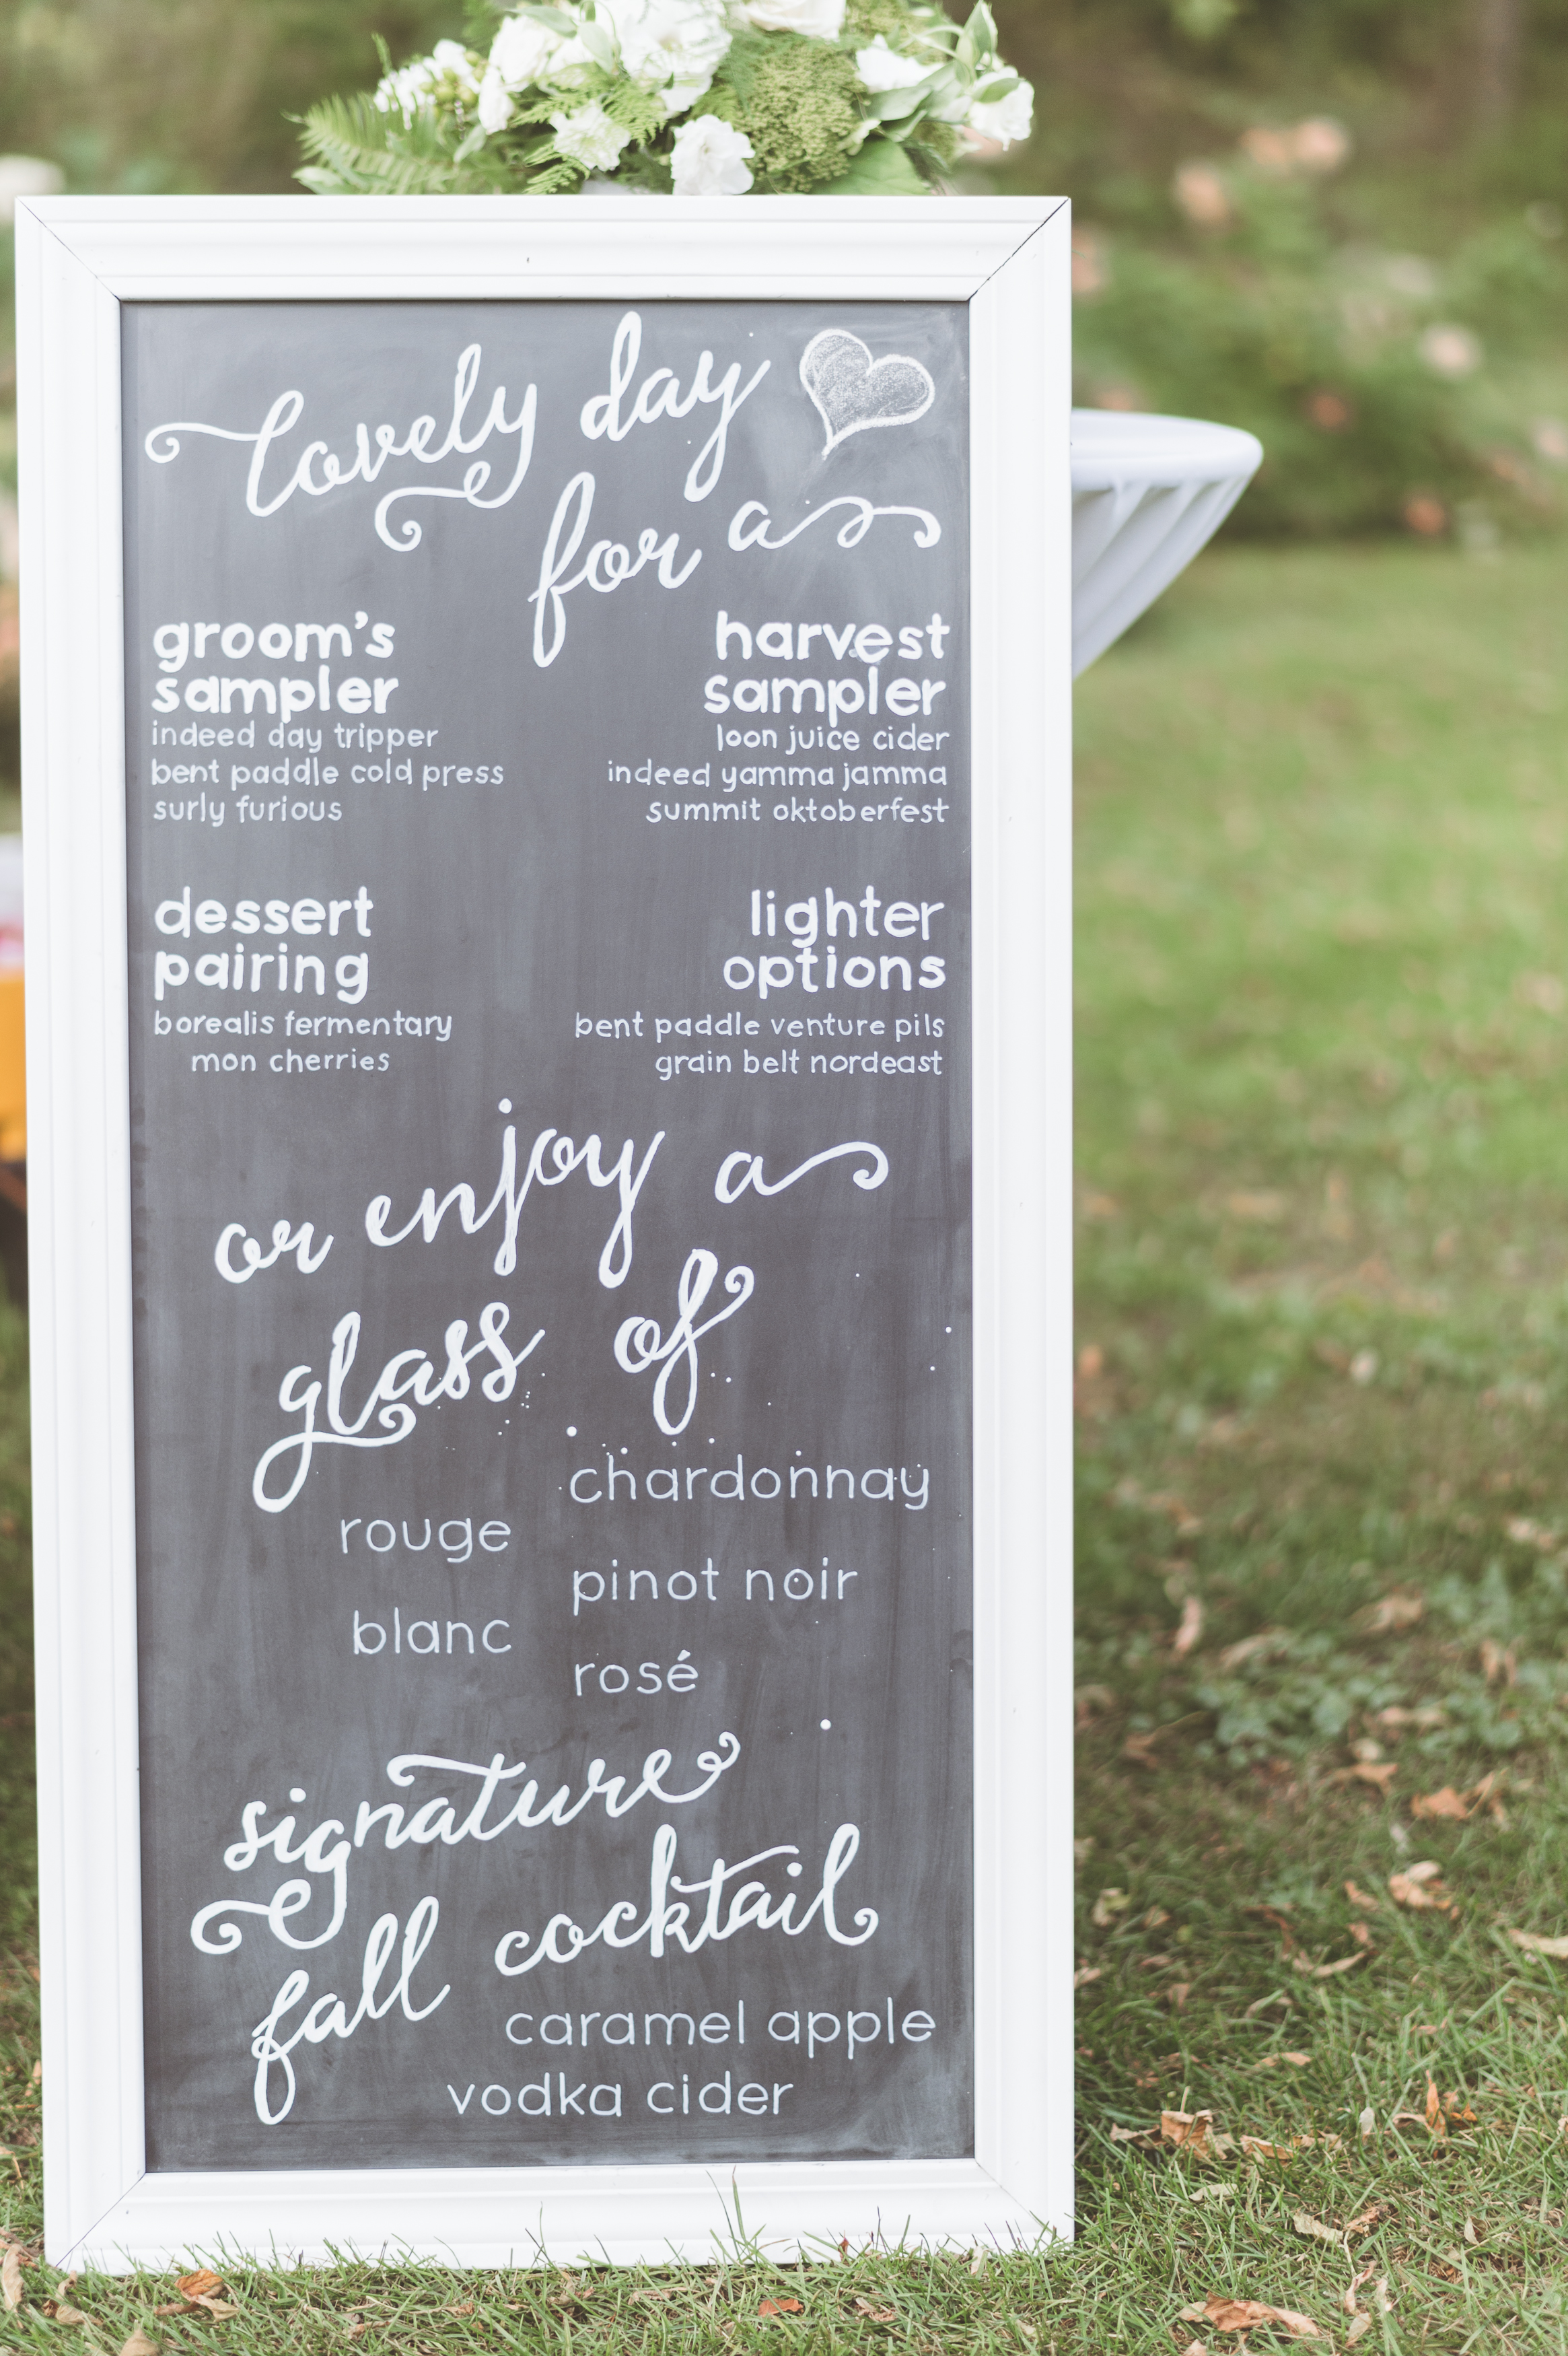 lovely day
for a
groom's
sampler
indeed day tripper
bent paddle cold press
surly furious
harvest
sampler
loon juice cider
indeed yamma jamma
summit oktoberfest
dessert
pairing
borealis fermentary
mon cherries
lighter
options
bent paddle venture pils
grain belt nordeast
or enjoy a
glass of
rouge
blanc
chardonnay
pinot noir
rosé
signature
fall cocktail
caramel apple
vodka cider